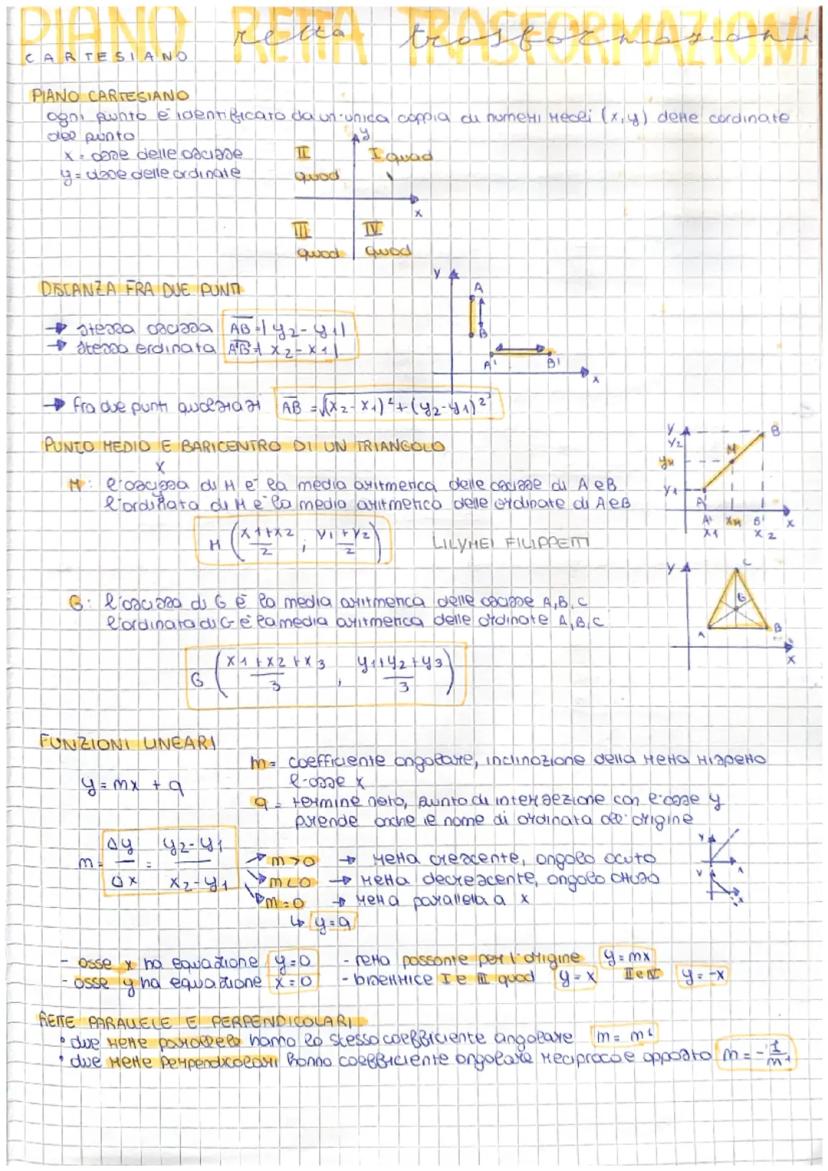 PIANO RETTA TRASFORMAZIONI
retta trasformazioni
CARTESIANO
PIANO CARTESIANO
ogni punto è identificato da un'unica coppia di numeri reali (x,y) dette cordinate
del punto
x = asse delle ascisse
y = asse delle ordinate
y
II
quad
I quad
x
III
quad
IV
quad
DISTANZA FRA DUE PUNTI
→ stessa ascissa AB=|y2-y1|
→ stessa ordinata A'B'=|x2-x1|
y A B A' B' x
→ fra due punti qualsiasi AB = √(x2-x1)²+(y2-y1)²
PUNTO MEDIO E BARICENTRO DI UN TRIANGOLO
x
M: l'ascissa di M è la media aritmetica delle ascisse di A e B
l'ordinata di M è la media aritmetica delle ordinate di A e B
M (x1+x2/2 ; y1+y2/2)
LILYMEI FILIPPETTI
y y2 yM y1 A M B
A' xM B' x
x1 x2
G: l'ascissa di G è la media aritmetica delle ascisse A, B, C
l'ordinata di G è la media aritmetica delle ordinate A, B, C
G (x1+x2+x3/3 , y1+y2+y3/3)
y C G A B x
FUNZIONI LINEARI
y=mx+q
m= coefficiente angolare, inclinazione della retta rispetto
l'asse x
q = termine noto, punto di intersezione con l'asse y
prende anche il nome di ordinata all'origine
m= Δy/Δx = y2-y1/x2-y1
→ m>0 → retta crescente, angolo acuto
→ m<0 → retta decrescente, angolo ottuso
→ m=0 → retta parallela a x
↳ y=q
- asse x ha equazione y=0
- asse y ha equazione x=0
- retta passante per l'origine y=mx
- bisettrice I e III quad y=x II e IV y=-x
RETTE PARALLELE E PERPENDICOLARI
• due rette parallele hanno lo stesso coefficiente angolare m=m'
• due rette perpendicolari hanno coefficiente angolare reciproco e opposto m=-1/m'